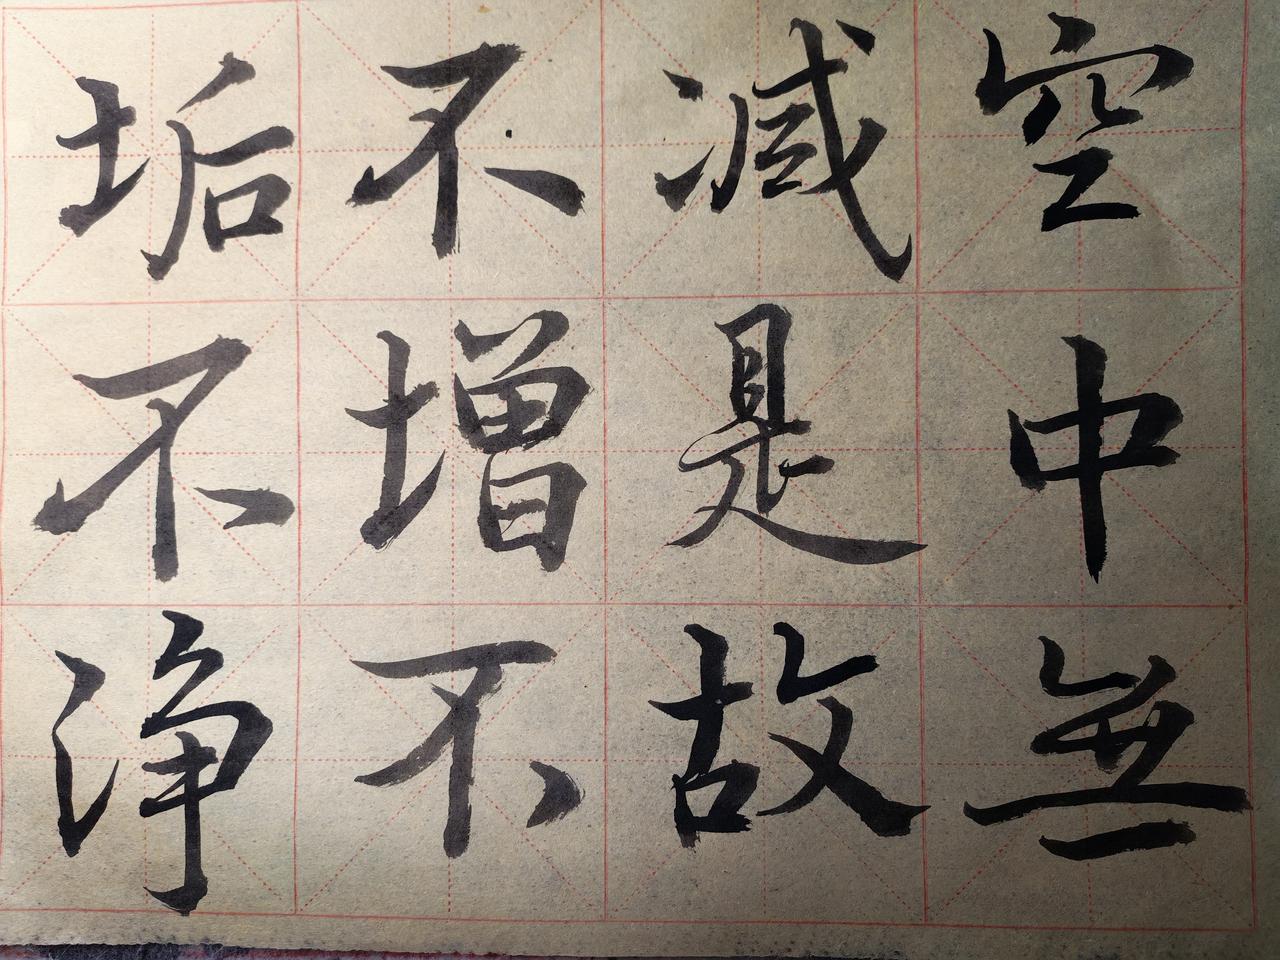 垢不净
不增不
减是故
空中無